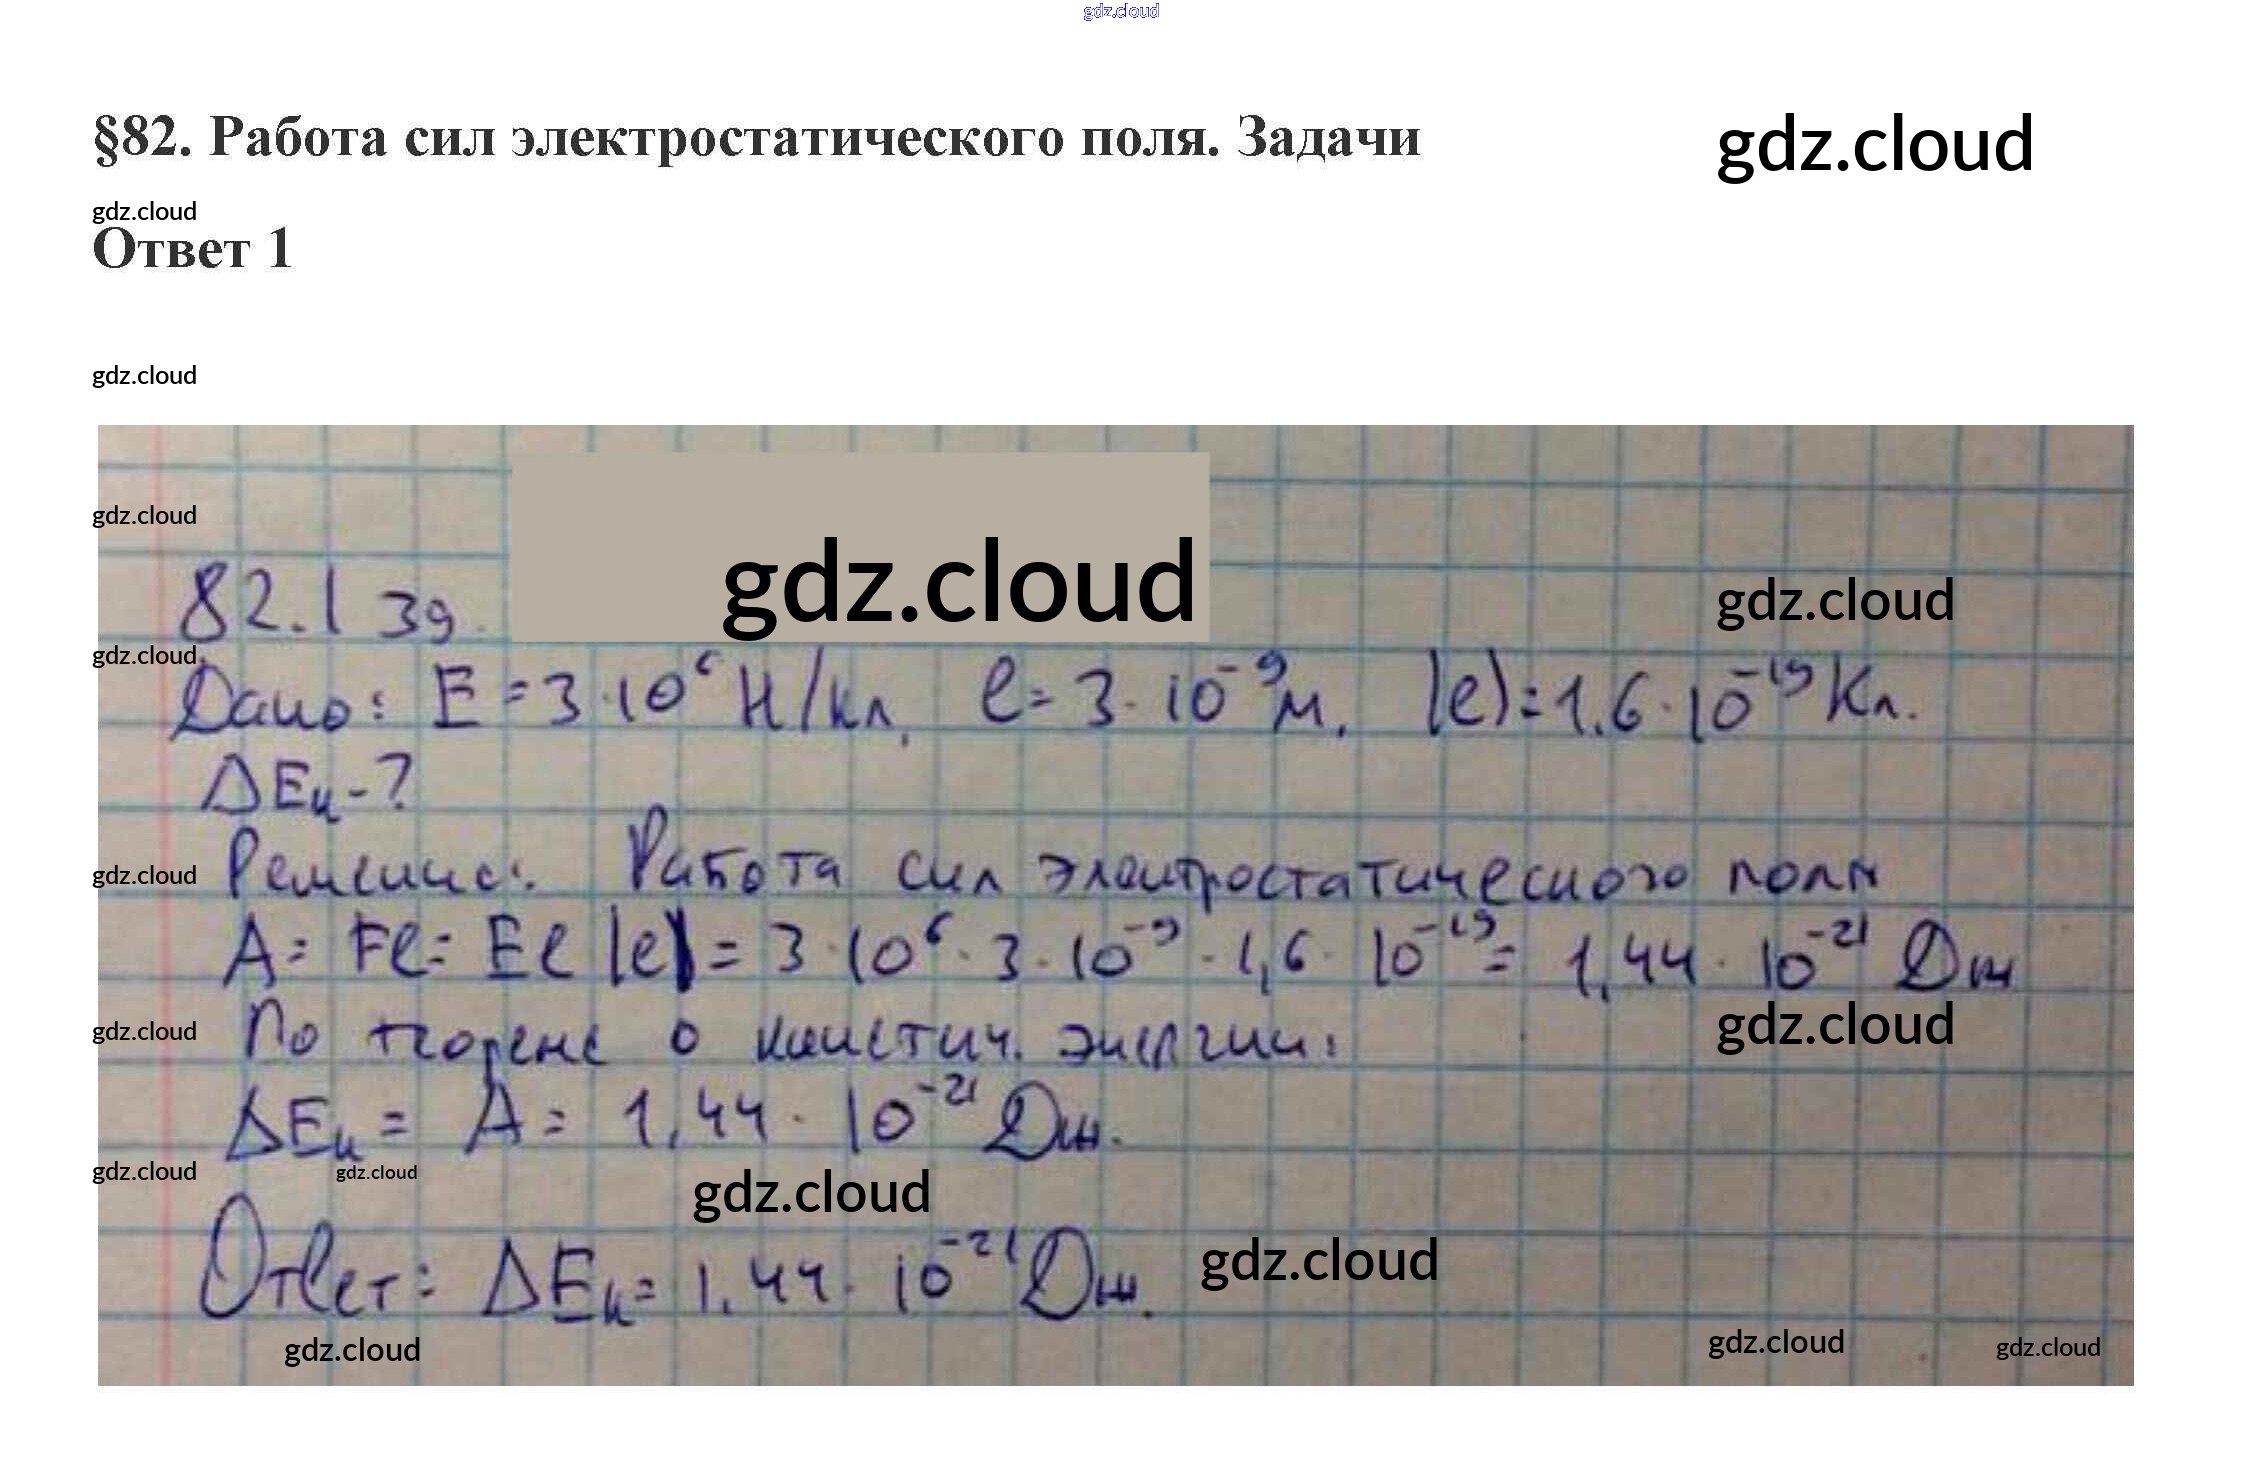 gdz.cloud
§82. Работа сил электростатического поля. Задачи
gdz.cloud
gdz.cloud
Ответ 1
gdz.cloud
gdz.cloud
gdz.cloud
82.1 зд.
gdz.cloud
gdz.cloud
Дано: E = 3·10⁶ Н/кл, l = 3·10⁻⁹ м, |e| = 1.6·10⁻¹⁹ Кл.
ΔEк - ?
Решение: Работа сил электростатического поля
gdz.cloud
A = Fl = El|e| = 3·10⁶·3·10⁻⁹·1,6·10⁻¹⁹ = 1,44·10⁻²¹ Дж
gdz.cloud
По теореме о кинетич. энергии:
gdz.cloud
ΔEк = A = 1,44·10⁻²¹ Дж.
gdz.cloud
gdz.cloud
gdz.cloud
Ответ: ΔEк = 1,44·10⁻²¹ Дж.
gdz.cloud
gdz.cloud
gdz.cloud
gdz.cloud